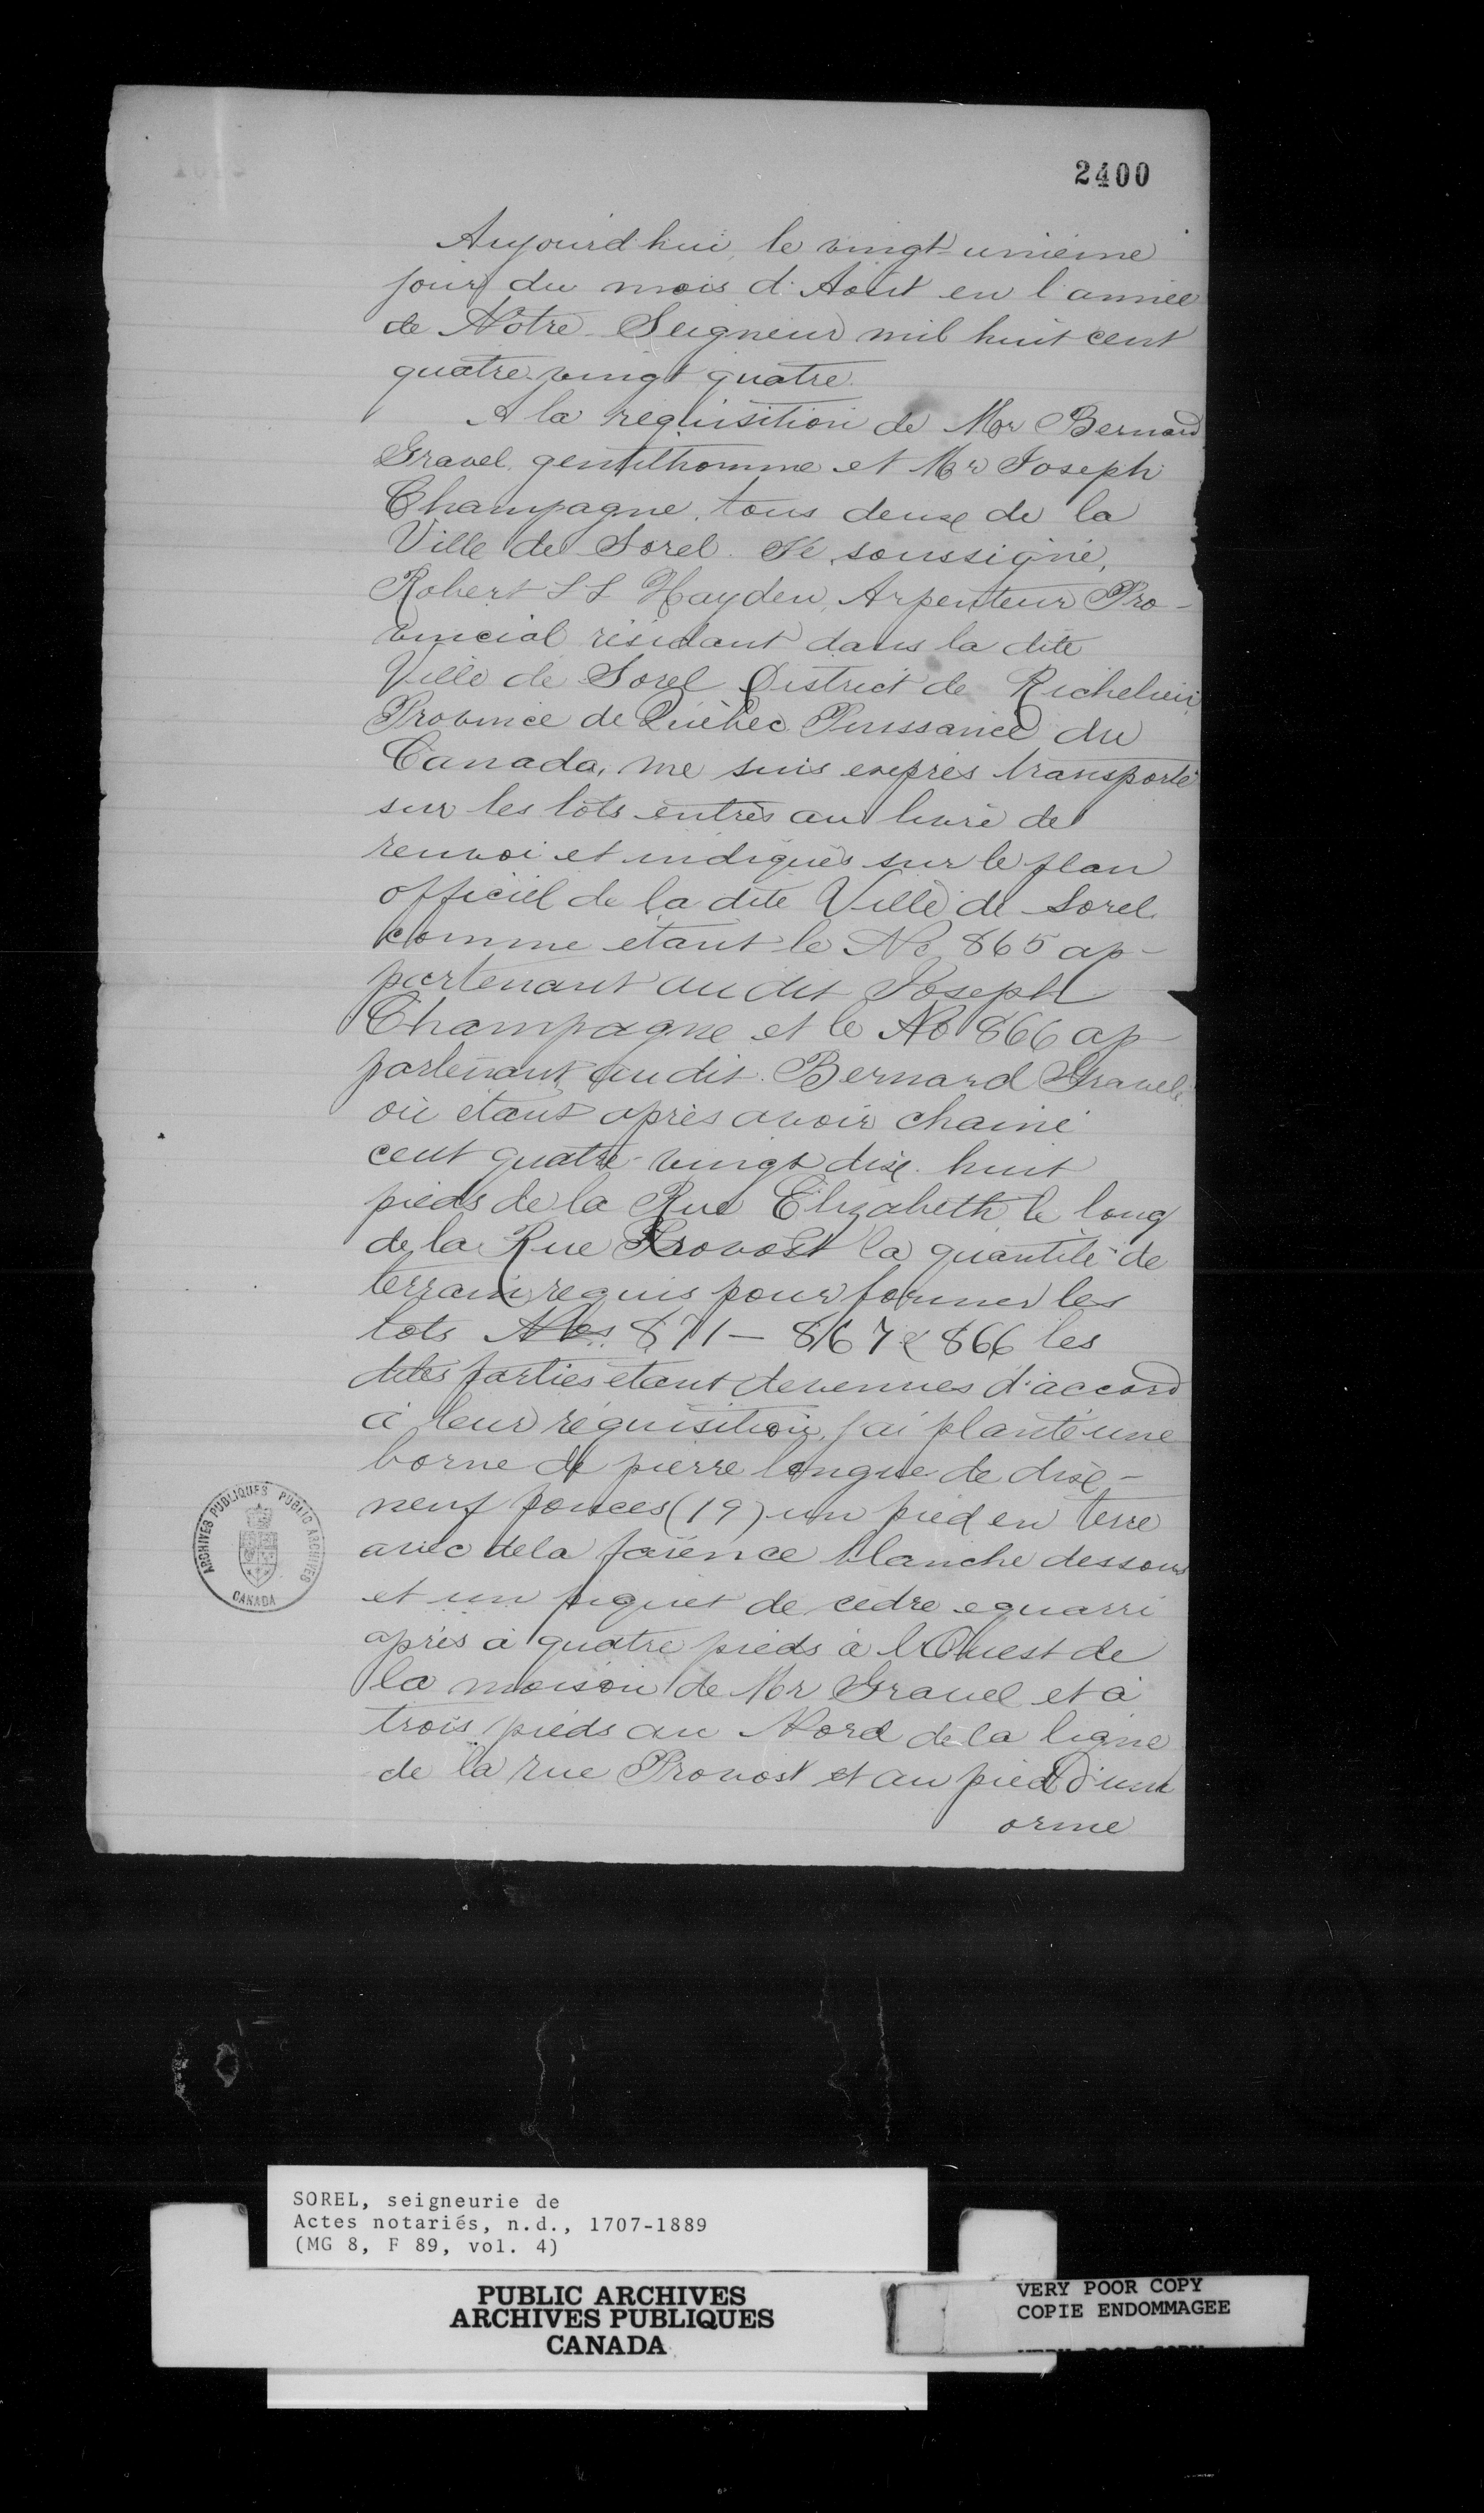 2400
Aujourd'hui, le vingt-unième
jour du mois d'Août en l'année
de Nôtre Seigneur mil huit cent
quatre-vingt quatre.
A la réquisition de Mr Bernard
Gravel, gentilhomme et Mr Joseph
Champagne, tous deux de la
Ville de Sorel. Je, soussigné,
Robert S S Hayden, Arpenteur Pro-
vincial résidant dans la dite
Ville de Sorel District de Richelieu
Province de Québec Puissance du
Canada, me suis exprès transporté
sur les lots entrés au livre de
renvoi et indiqués sur le plan
officiel de la dite Ville de Sorel
comme étant le No 865 ap-
partenant au dit Joseph
Champagne et le No 866 ap-
partenant au dit Bernard Gravel,
où étant après avoir chainé
cent quatre-vingt dix-huit
pieds de la Rue Elizabeth le long
de la Rue Provost la quantité de
terrain requis pour former les
lots Nos 871 — 867 & 866 les
dites parties étant devenues d'accord
à leur réquisition, j'ai planté une
borne de pierre longue de dix-
neuf pouces (19) un pied en terre
avec de la faïence blanche dessous
et un piquet de cèdre equarri
après à quatre pieds à l'Ouest de
la maison de Mr Gravel et à
trois pieds au Nord de la ligne
de la rue Provost et au pied d'un
orme
ARCHIVES PUBLIQUES PUBLIC ARCHIVES
CANADA
SOREL, seigneurie de
Actes notariés, n.d., 1707-1889
(MG 8, F 89, vol. 4)
PUBLIC ARCHIVES
ARCHIVES PUBLIQUES
CANADA
VERY POOR COPY
COPIE ENDOMMAGEE
VERY POOR COPY